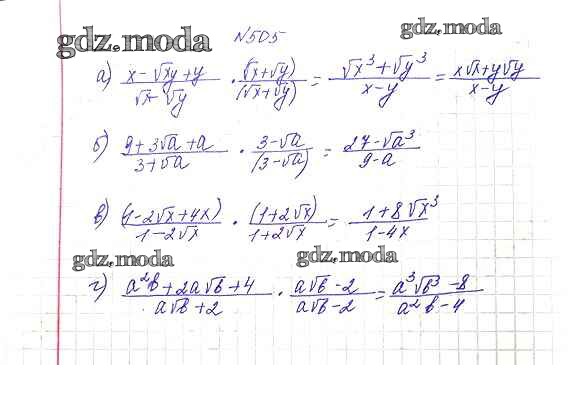 gdz.moda
№505
gdz.moda
а) (x - √xy + y)/(√x - √y) · (√x + √y)/(√x + √y) = (√x³ + √y³)/(x - y) = (x√x + y√y)/(x - y)
б) (9 + 3√a + a)/(3 + √a) · (3 - √a)/(3 - √a) = (27 - √a³)/(9 - a)
в) (1 - 2√x + 4x)/(1 - 2√x) · (1 + 2√x)/(1 + 2√x) = (1 + 8√x³)/(1 - 4x)
gdz.moda
gdz.moda
г) (a²b + 2a√b + 4)/(a√b + 2) · (a√b - 2)/(a√b - 2) = (a³√b³ - 8)/(a²b - 4)